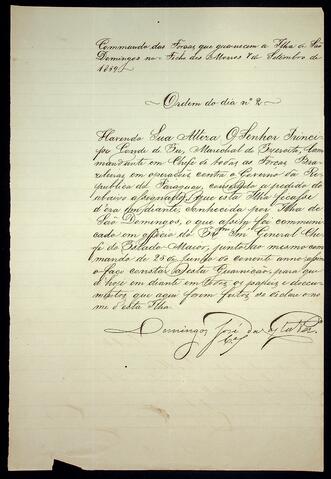 Commando das Forças que guarnecem a Ilha de São
Domingos no Fecho dos Morros 7 de Setembro de
1869.
Ordem do dia nº 2.
Havendo Sua Alteza O Senhor Princi
pe Conde d'Eu, Marechal de Exercito, Com
mandante em Chefe de todas as Forças Brazi
leiras em operações contra o Governo da Re
publica do Paraguay, a pedido do
abaixo assignado, que esta Ilha ficasse
d'ora em diante conhecida por Ilha de
São Domingos, o que assim foi commu
cado em officio do Snr General Che
fe do Estado Maior, junto ao mesmo com
mando de 25 de Junho do corrente anno
o faço constar a esta Guarnição, para que
d'hoje em diante em todos os papeis e docu
mentos que aqui forem feitos se declare o no
me d'esta Ilha.
Domingos José da